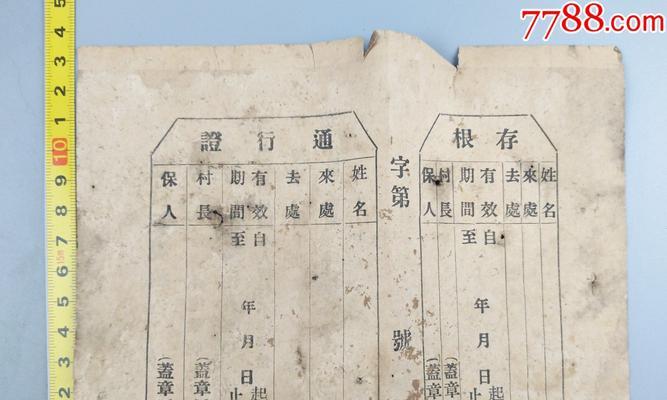 7788.com
存根
姓名
來處
去處
有效期間
自 年 月 日起
至 年 月 日止
村長 (蓋章
保人 (蓋章
字第 號
通行證
姓名
來處
去處
有效期間
自 年 月 日起
至 年 月 日止
村長 (蓋章
保人 (蓋章